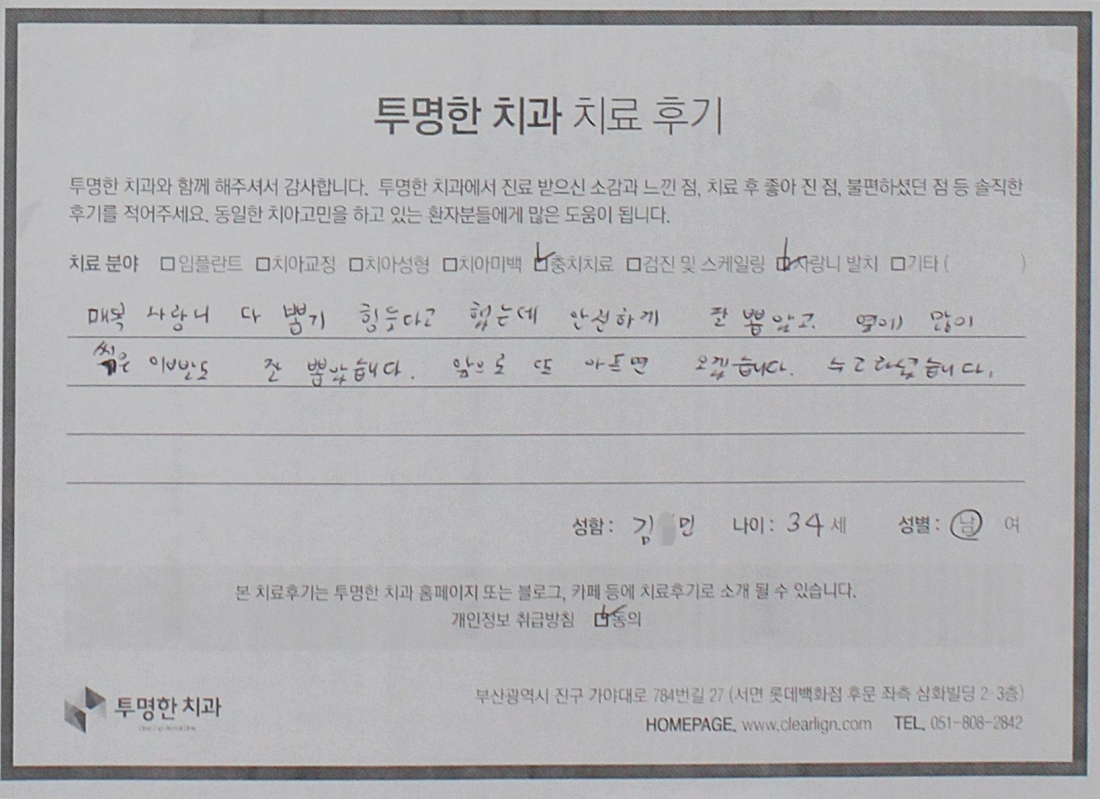 투명한 치과 치료 후기
투명한 치과와 함께 해주셔서 감사합니다. 투명한 치과에서 진료 받으신 소감과 느낀 점, 치료 후 좋아 진 점, 불편하셨던 점 등 솔직한
후기를 적어주세요. 동일한 치아고민을 하고 있는 환자분들에게 많은 도움이 됩니다.
치료 분야 □임플란트 □치아교정 □치아성형 □치아미백 ☑충치치료 □검진 및 스케일링 ☑사랑니 발치 □기타 ( )
매복 사랑니 다 뽑기 힘듯다고 했는데 안전하게 잘 뽑았고. 옆이 많이
썩은 이빨도 잘 뽑았습니다. 앞으로 또 아프면 오겠습니다. 수고하셨습니다.
성함 : 김 민 나이 : 34 세 성별 : 남 여
본 치료후기는 투명한 치과 홈페이지 또는 블로그, 카페 등에 치료후기로 소개 될 수 있습니다.
개인정보 취급방침 ☑동의
투명한 치과
부산광역시 진구 가야대로 784번길 27 (서면 롯데백화점 후문 좌측 삼화빌딩 2·3층)
HOMEPAGE. www.clearlign.com TEL. 051-808-2842